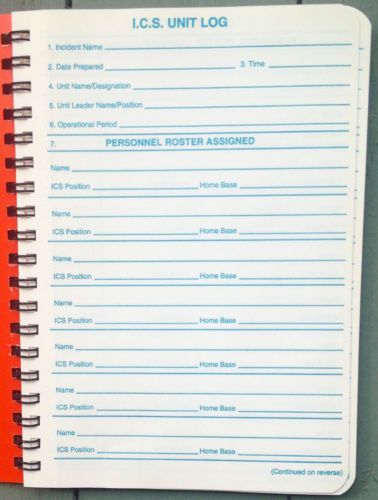 I.C.S. UNIT LOG
1. Incident Name
2. Date Prepared 3. Time
4. Unit Name/Designation
5. Unit Leader Name/Position
6. Operational Period
7. PERSONNEL ROSTER ASSIGNED
Name
ICS Position Home Base
Name
ICS Position Home Base
Name
ICS Position Home Base
Name
ICS Position Home Base
Name
ICS Position Home Base
Name
ICS Position Home Base
Name
ICS Position Home Base
(Continued on reverse)